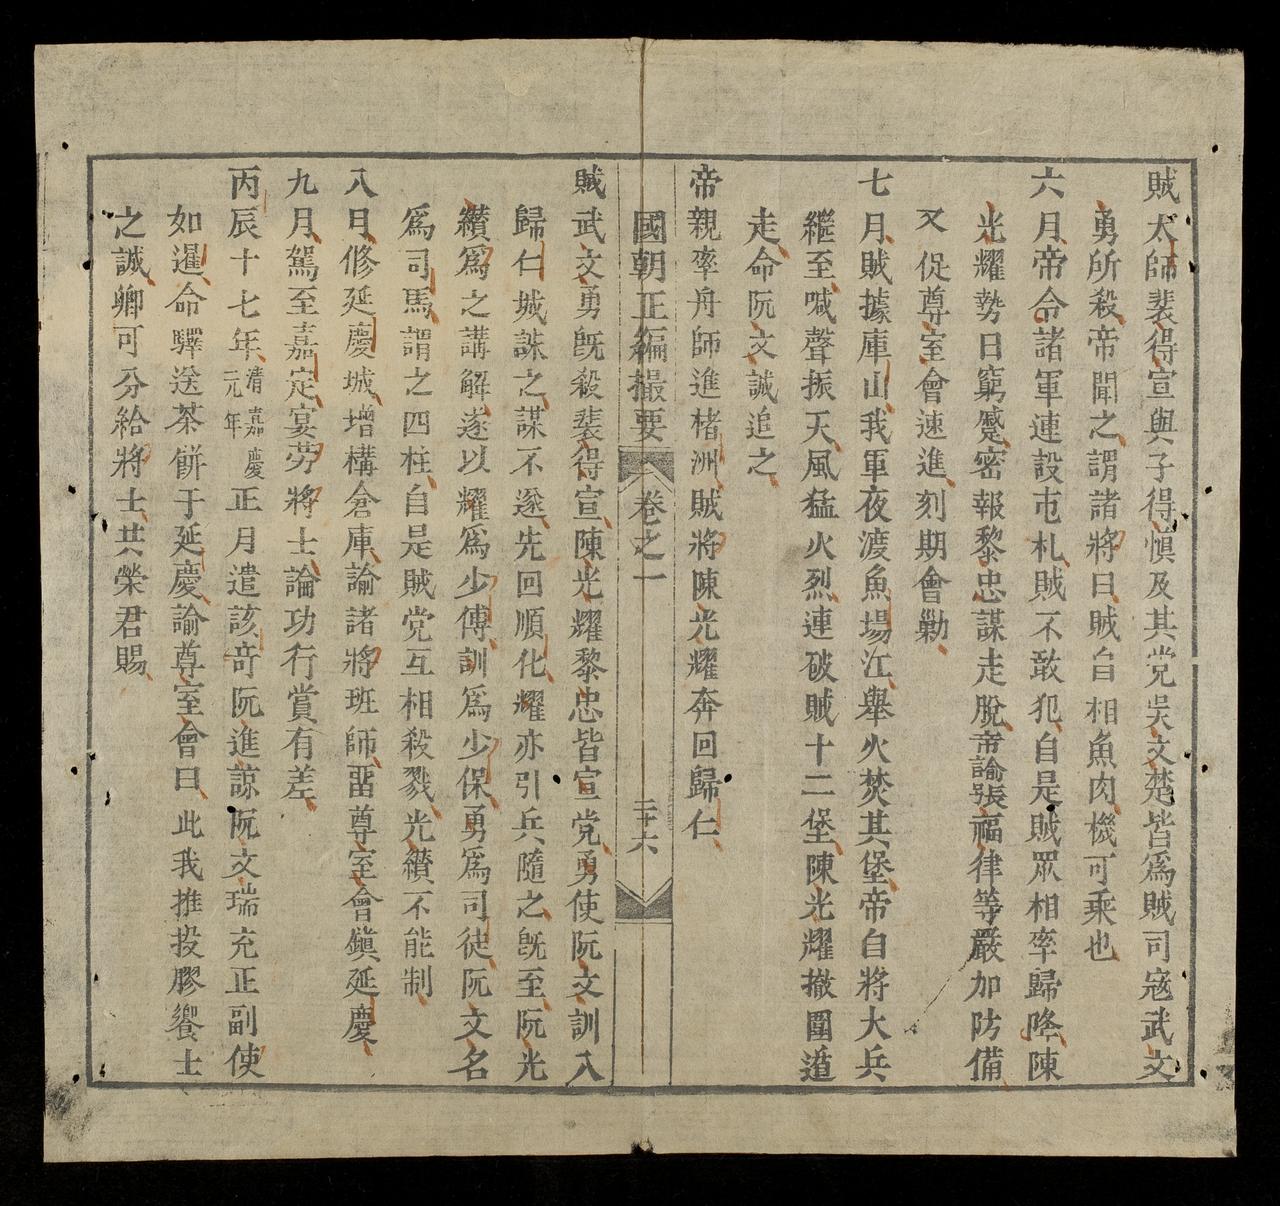 賊太師裴得宣與子得愼及其党吳文楚皆爲賊司寇武文
勇所殺帝聞之謂諸將曰賊自相魚肉機可乘也
六月帝令諸軍連設屯札賊不敢犯自是賊眾相率歸降陳
光耀勢日窮蹙密報黎忠謀走脫帝諭張福律等嚴加防備
又促尊室會速進刻期會勦
七月賊據庫山我軍夜渡魚場江舉火焚其堡帝自將大兵
繼至喊聲振天風猛火烈連破賊十二堡陳光耀撤圍遁
走命阮文誠追之
帝親率舟師進楮洲賊將陳光耀奔回歸仁
國朝正編撮要 卷之一 二十六
賊武文勇旣殺裴得宣陳光耀黎忠皆宣党勇使阮文訓入
歸仁城誅之謀不遂先回順化耀亦引兵隨之旣至阮光
纘爲之講解遂以耀爲少傅訓爲少保勇爲司徒阮文名
爲司馬謂之四柱自是賊党互相殺戮光纘不能制
八月修延慶城增構倉庫諭諸將班師畱尊室會鎭延慶
九月駕至嘉定宴勞將士論功行賞有差
丙辰十七年清嘉慶元年正月遣該竒阮進諒阮文瑞充正副使
如暹命驛送茶餅于延慶諭尊室會曰此我推投膠饗士
之誠卿可分給將士共榮君賜